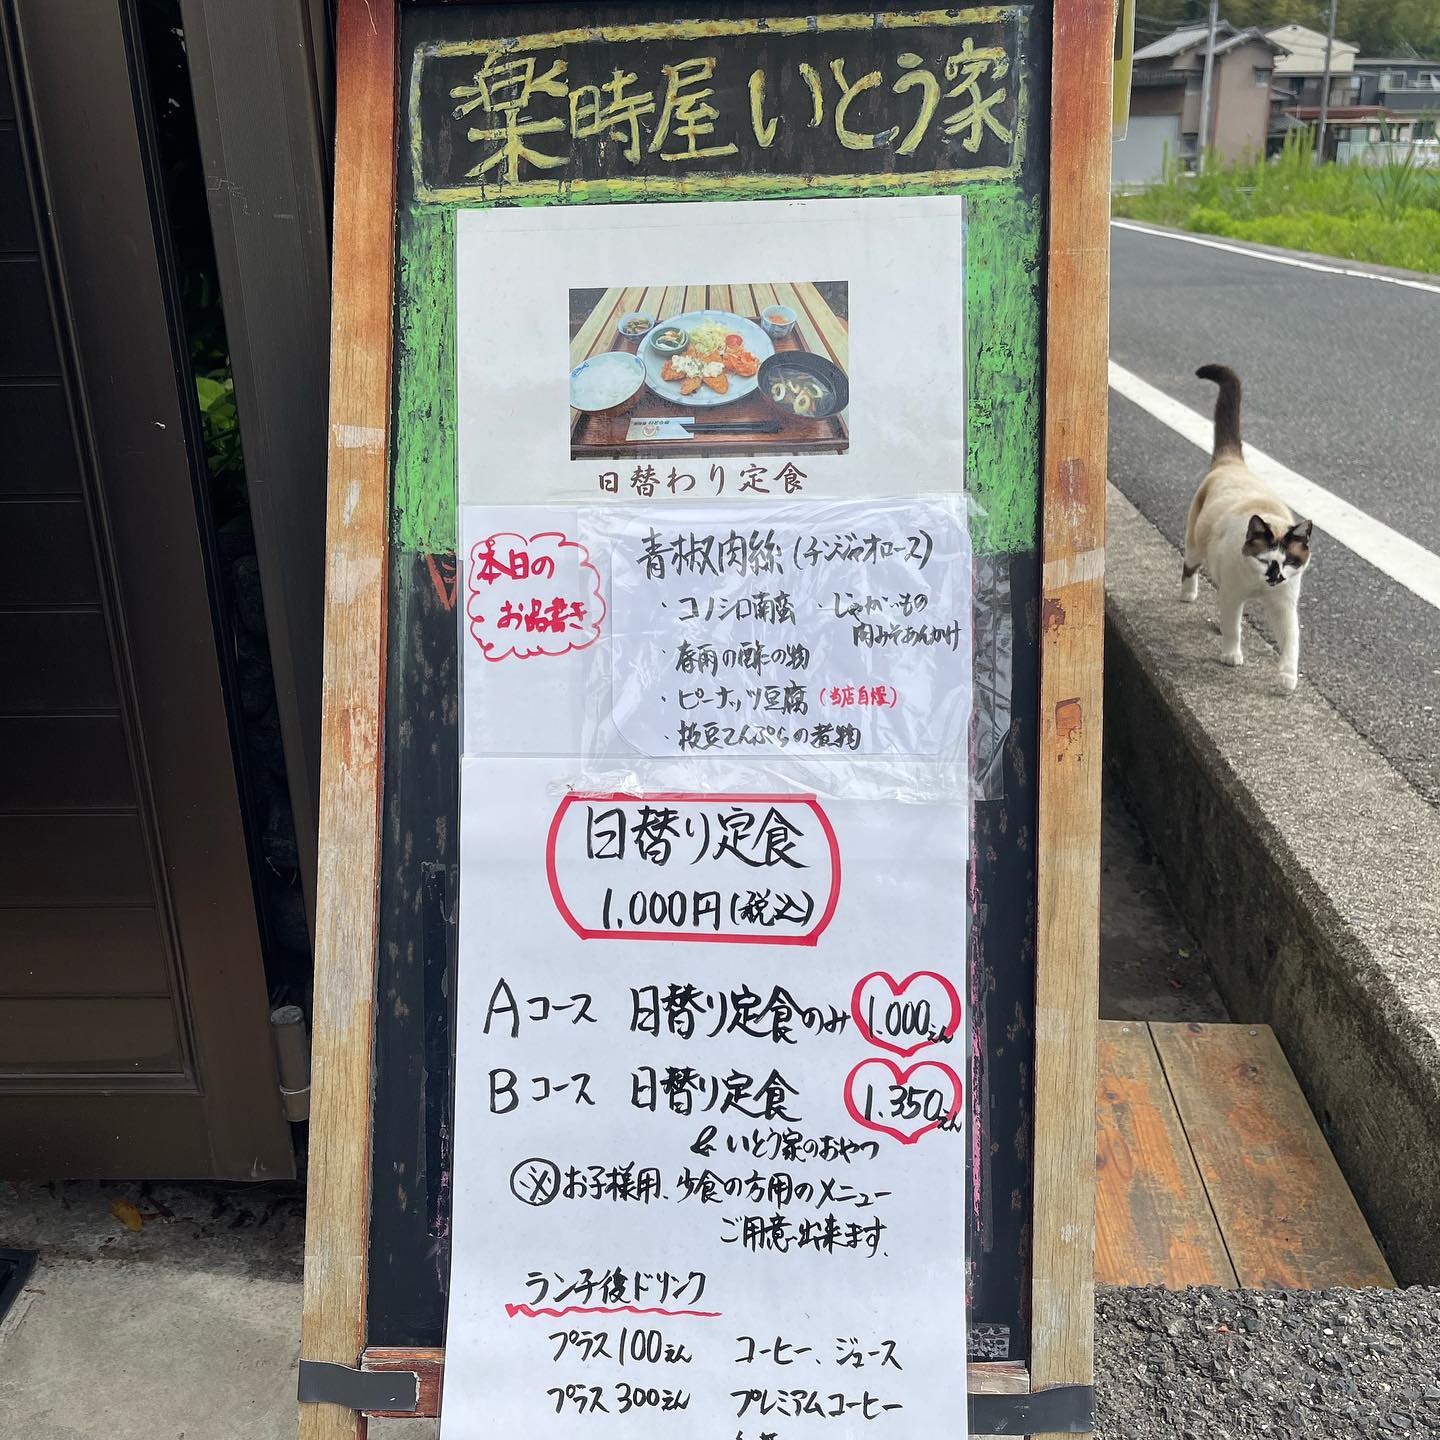 楽時屋 いとう家
日替わり定食
本日の
お品書き
青椒肉絲(チンジャオロース)
・コノシロ南蛮 ・じゃがいもの
肉みそあんかけ
・春雨の酢の物
・ピーナッツ豆腐 (当店自慢)
・枝豆てんぷらの煮物
日替り定食
1,000円(税込)
Aコース 日替り定食のみ 1.000えん
Bコース 日替り定食 1.350えん
& いとう家のおやつ
※お子様用、少食の方用のメニュー
ご用意出来ます。
ランチ後ドリンク
プラス100えん コーヒー、ジュース
プラス300えん プレミアムコーヒー